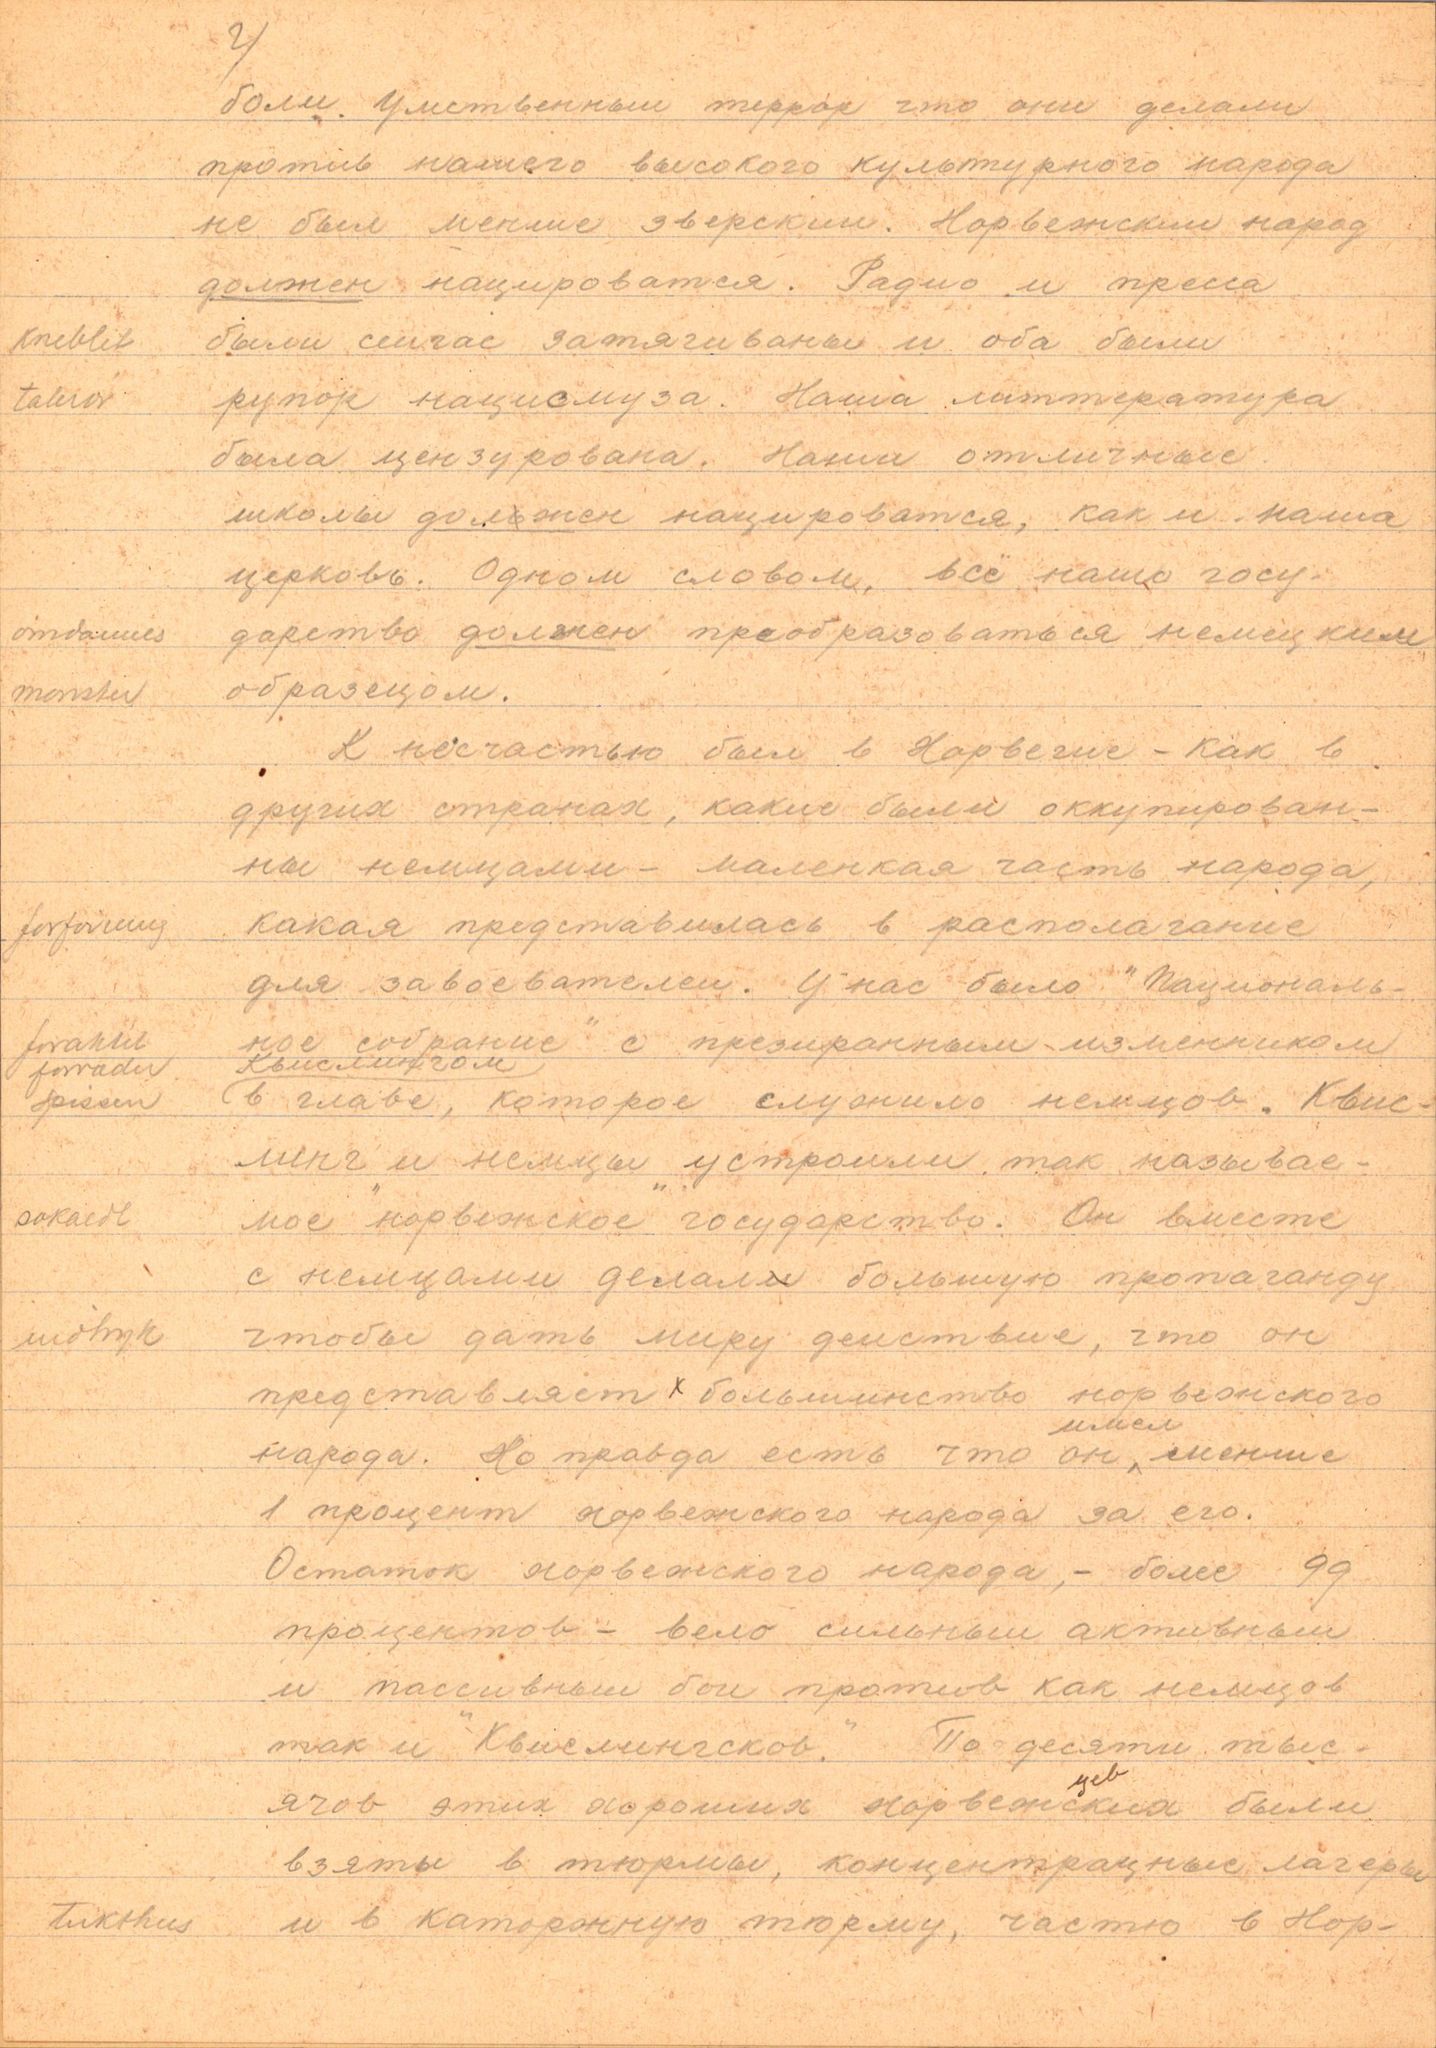 2)
боли. Умственныи террор что они делали
против нашего высокого культурного народа
не был менше зверскии. Норвежскии народ
должен нацироватся. Радио и пресса
kneblet были сеичас затягиваны и оба были
talerør рупор нацисмуза. Наша литтература
была цензурована. Наши отличные
школы должен нацироватся, как и наша
церковь. Одном словом, всё нашо госу-
omdannes дарство должен преобразоваться немецким
mønster образецом.
К несчастью был в Норвегие - как в
других странах, какие были оккупирован-
ны немцами - маленкая часть народа,
forføining какая представилась в располагание
для завоевателеи. У нас было "Националь-
foraktet ное собрание" с презиранным изменником
forræder Квислингом
spissen в главе, которое служило немцов.Квис-
линг и немцы устроили так называе-
såkaldt мое "норвежское" государство. Он вместе
с немцами делали большую пропаганду
inntrykk чтобы дать миру деиствие, что он
представляет х большинство норвежского
имел
народа. Но правда есть что он менше
1 процент норвежского народа за его.
Остаток норвежского народа, - более 99
процентов - вело сильныи активныи
и пассивныи бои против как немцов
так и "Квислингсков." По десяти тыс-
цев
ячов этих хороших норвежских были
взяты в тюрмы, концентрацные лагеры
tukthus и в каторжную тюрму, частю в Нор-